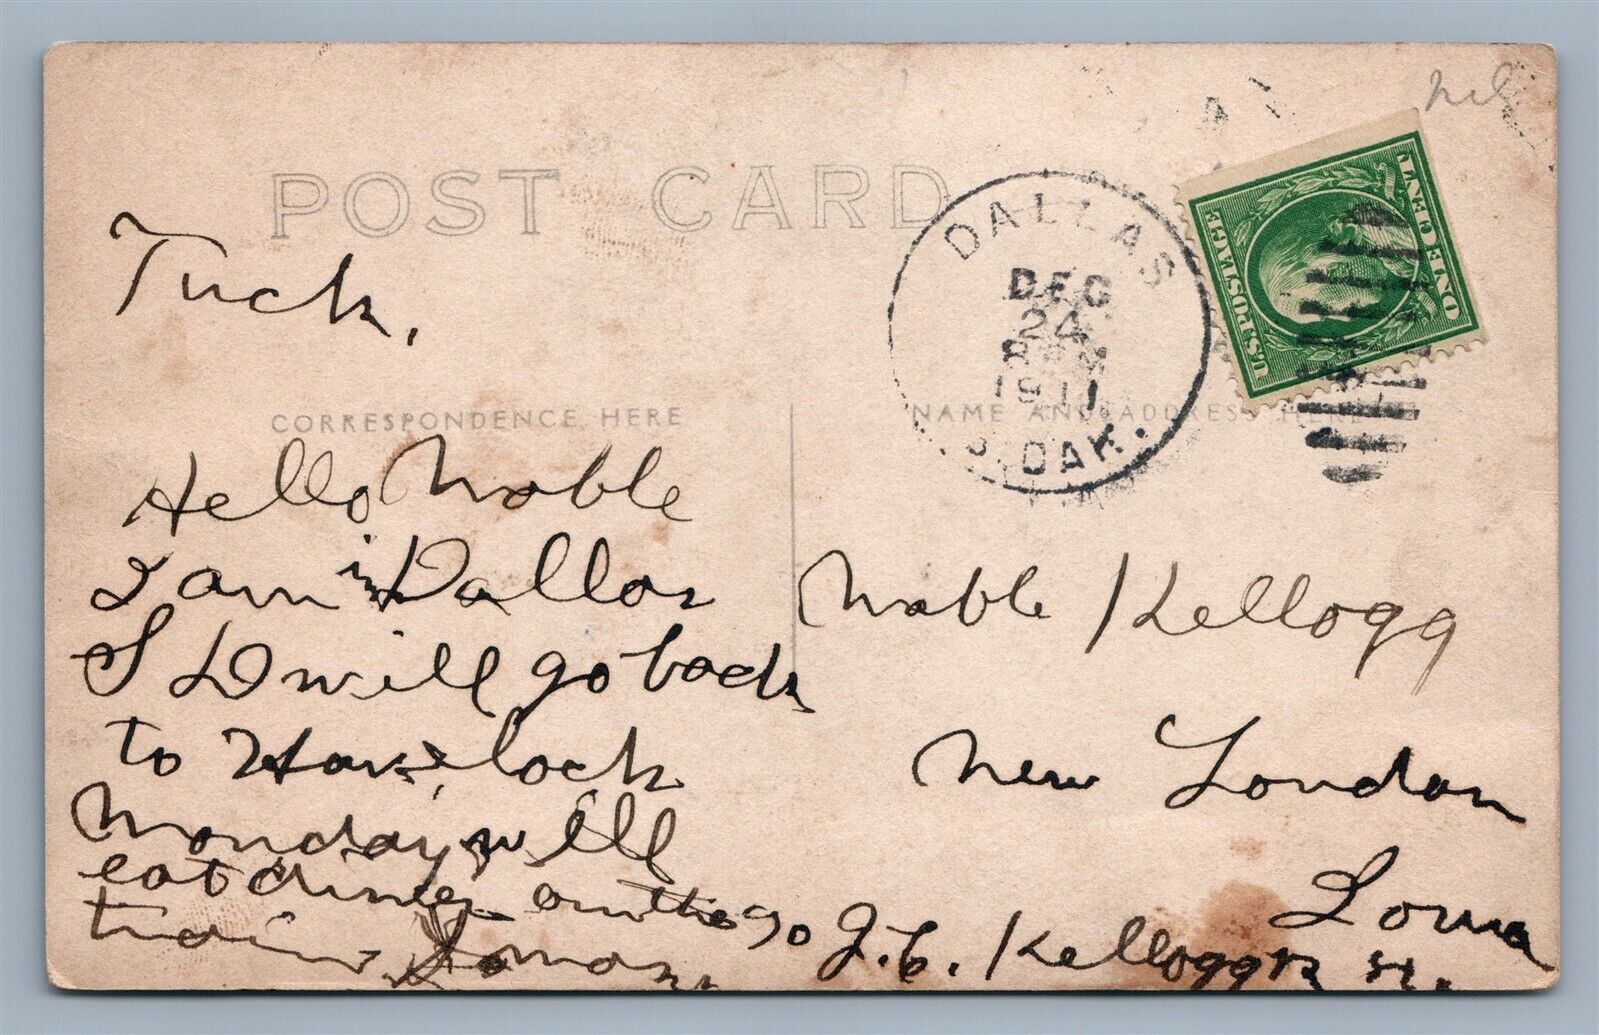 POST CARD
Tuck,
CORRESPONDENCE HERE
Hello Noble
I am in Dallas
S D will go back
to Havelock
Monday will
eat dinner on the go
train
NAME AND ADDRESS
DALLAS
DEC
24
1911
S. DAK.
U.S. POSTAGE
ONE CENT
Noble Kellogg
New London
Iowa
J. C. Kellogg